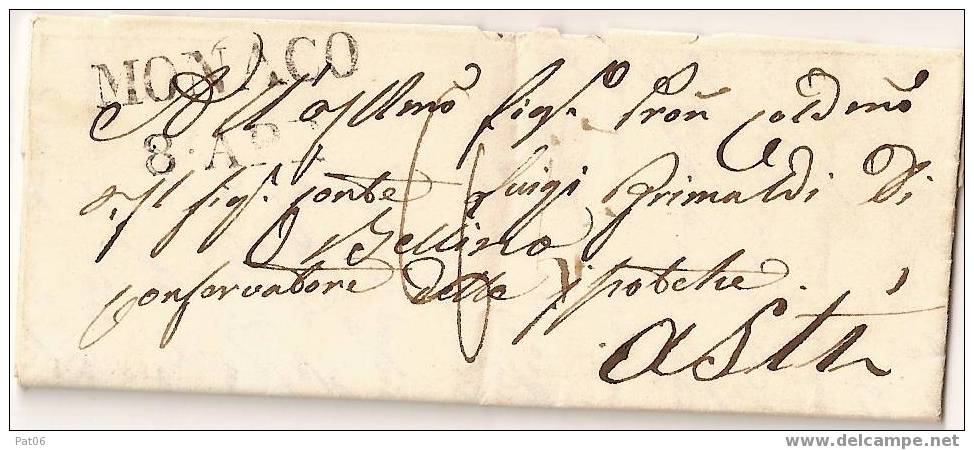 MONACO
All Illmo Sigr Pron Coldmo
8 APR
Il Sigr Conte Luigi Grimaldi Di
Bellino
Conservatore delle Ipoteche.
Asti
Pat06
www.delcampe.net